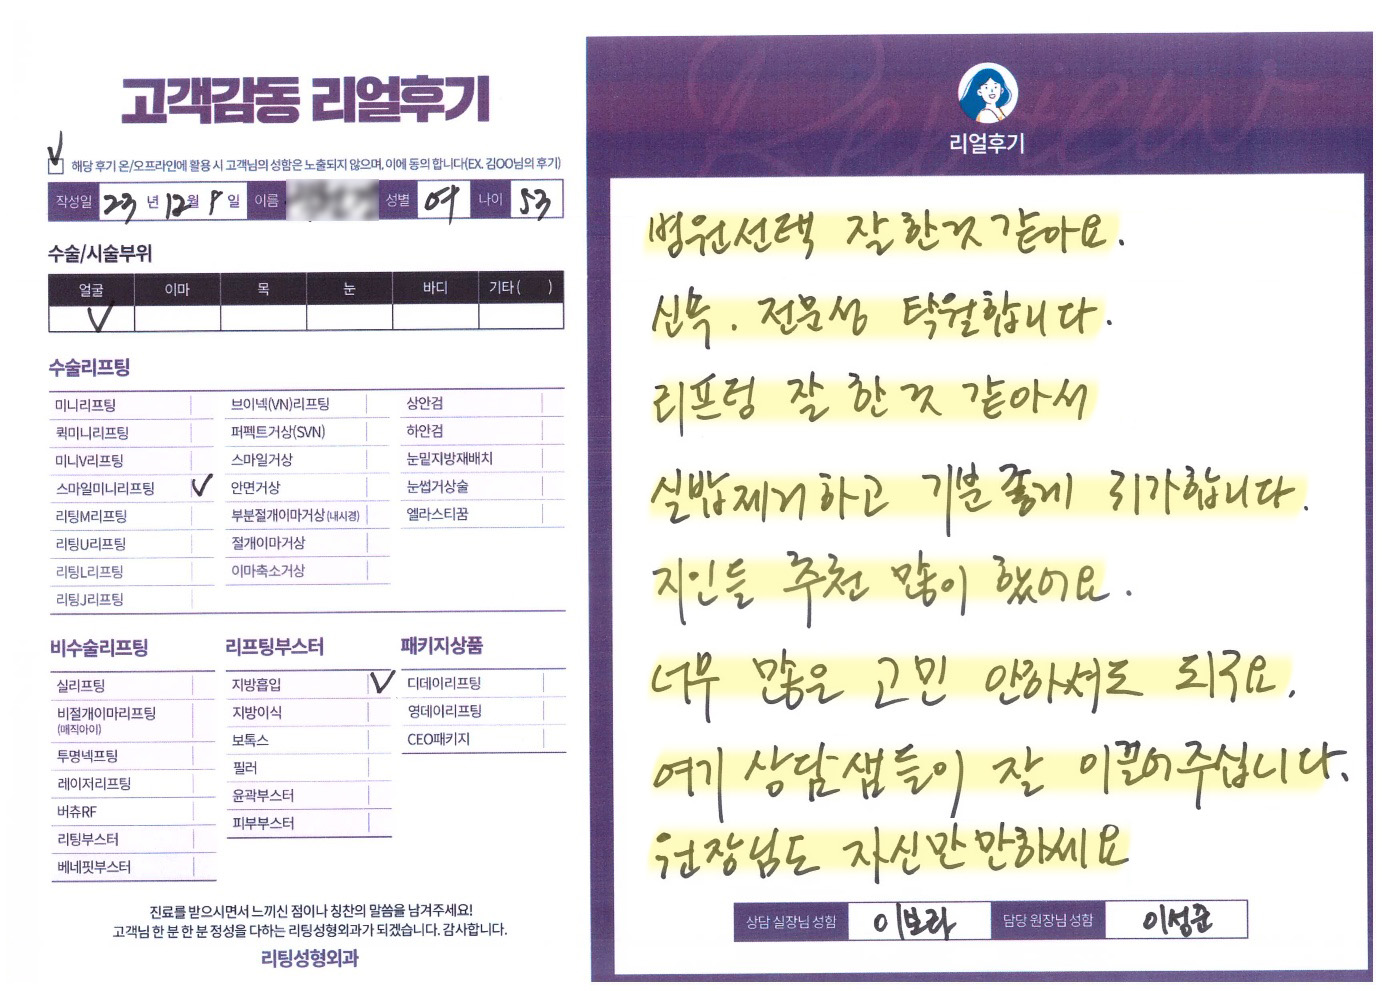 고객감동 리얼후기
해당 후기 온/오프라인에 활용 시 고객님의 성함은 노출되지 않으며, 이에 동의 합니다(EX. 김OO님의 후기)
작성일 23 년 12월 9 일 이름 성별 여 나이 53
수술/시술부위
얼굴 이마 목 눈 바디 기타 ( )
수술리프팅
미니리프팅 브이넥(VN)리프팅 상안검
퀵미니리프팅 퍼펙트거상(SVN) 하안검
미니V리프팅 스마일거상 눈밑지방재배치
스마일미니리프팅 안면거상 눈썹거상술
리팅M리프팅 부분절개이마거상 (내시경) 엘라스티꿈
리팅U리프팅 절개이마거상
리팅L리프팅 이마축소거상
리팅J리프팅
비수술리프팅 리프팅부스터 패키지상품
실리프팅 지방흡입 디데이리프팅
비절개이마리프팅 지방이식 영데이리프팅
(매직아이)
보톡스 CEO패키지
투명넥프팅 필러
레이저리프팅 윤곽부스터
버츄RF 피부부스터
리팅부스터
베네핏부스터
진료를 받으시면서 느끼신 점이나 칭찬의 말씀을 남겨주세요!
고객님 한 분 한 분 정성을 다하는 리팅성형외과가 되겠습니다. 감사합니다.
리팅성형외과
리얼후기
병원선택 잘 한것 같아요.
신뚝. 전문성 탁월합니다.
리프팅 잘 한 것 같아서
실밥제거하고 기분 좋게 귀가합니다.
지인들 추천 많이 했어요.
너무 많은 고민 안하셔도 되구요.
여기 상담샘들이 잘 이끌어주십니다.
원장님도 자신만만하세요
상담 실장님 성함 이보라 담당 원장님 성함 이성준